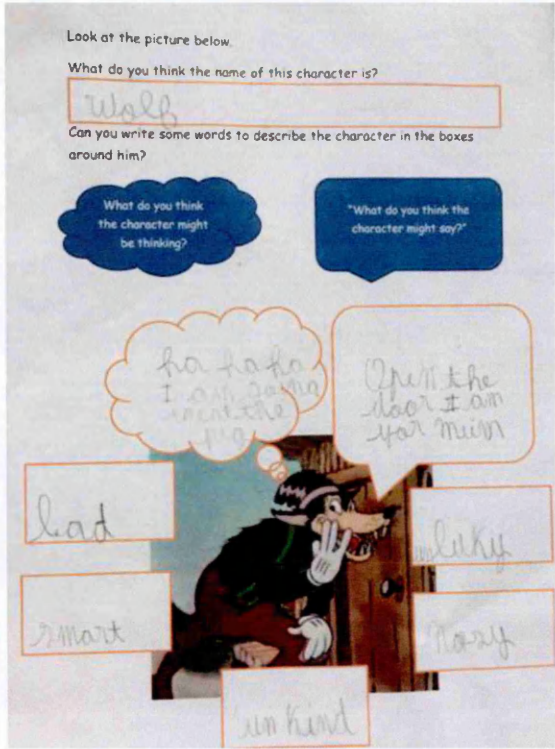 Look at the picture below.
What do you think the name of this character is?
Wolf
Can you write some words to describe the character in the boxes
around him?
What do you think
the character might
be thinking?
"What do you think the
character might say?"
ha ha ha
I am going
the
pig
Open the
door I am
yor mum
bad
unluky
smart
nosy
unkind